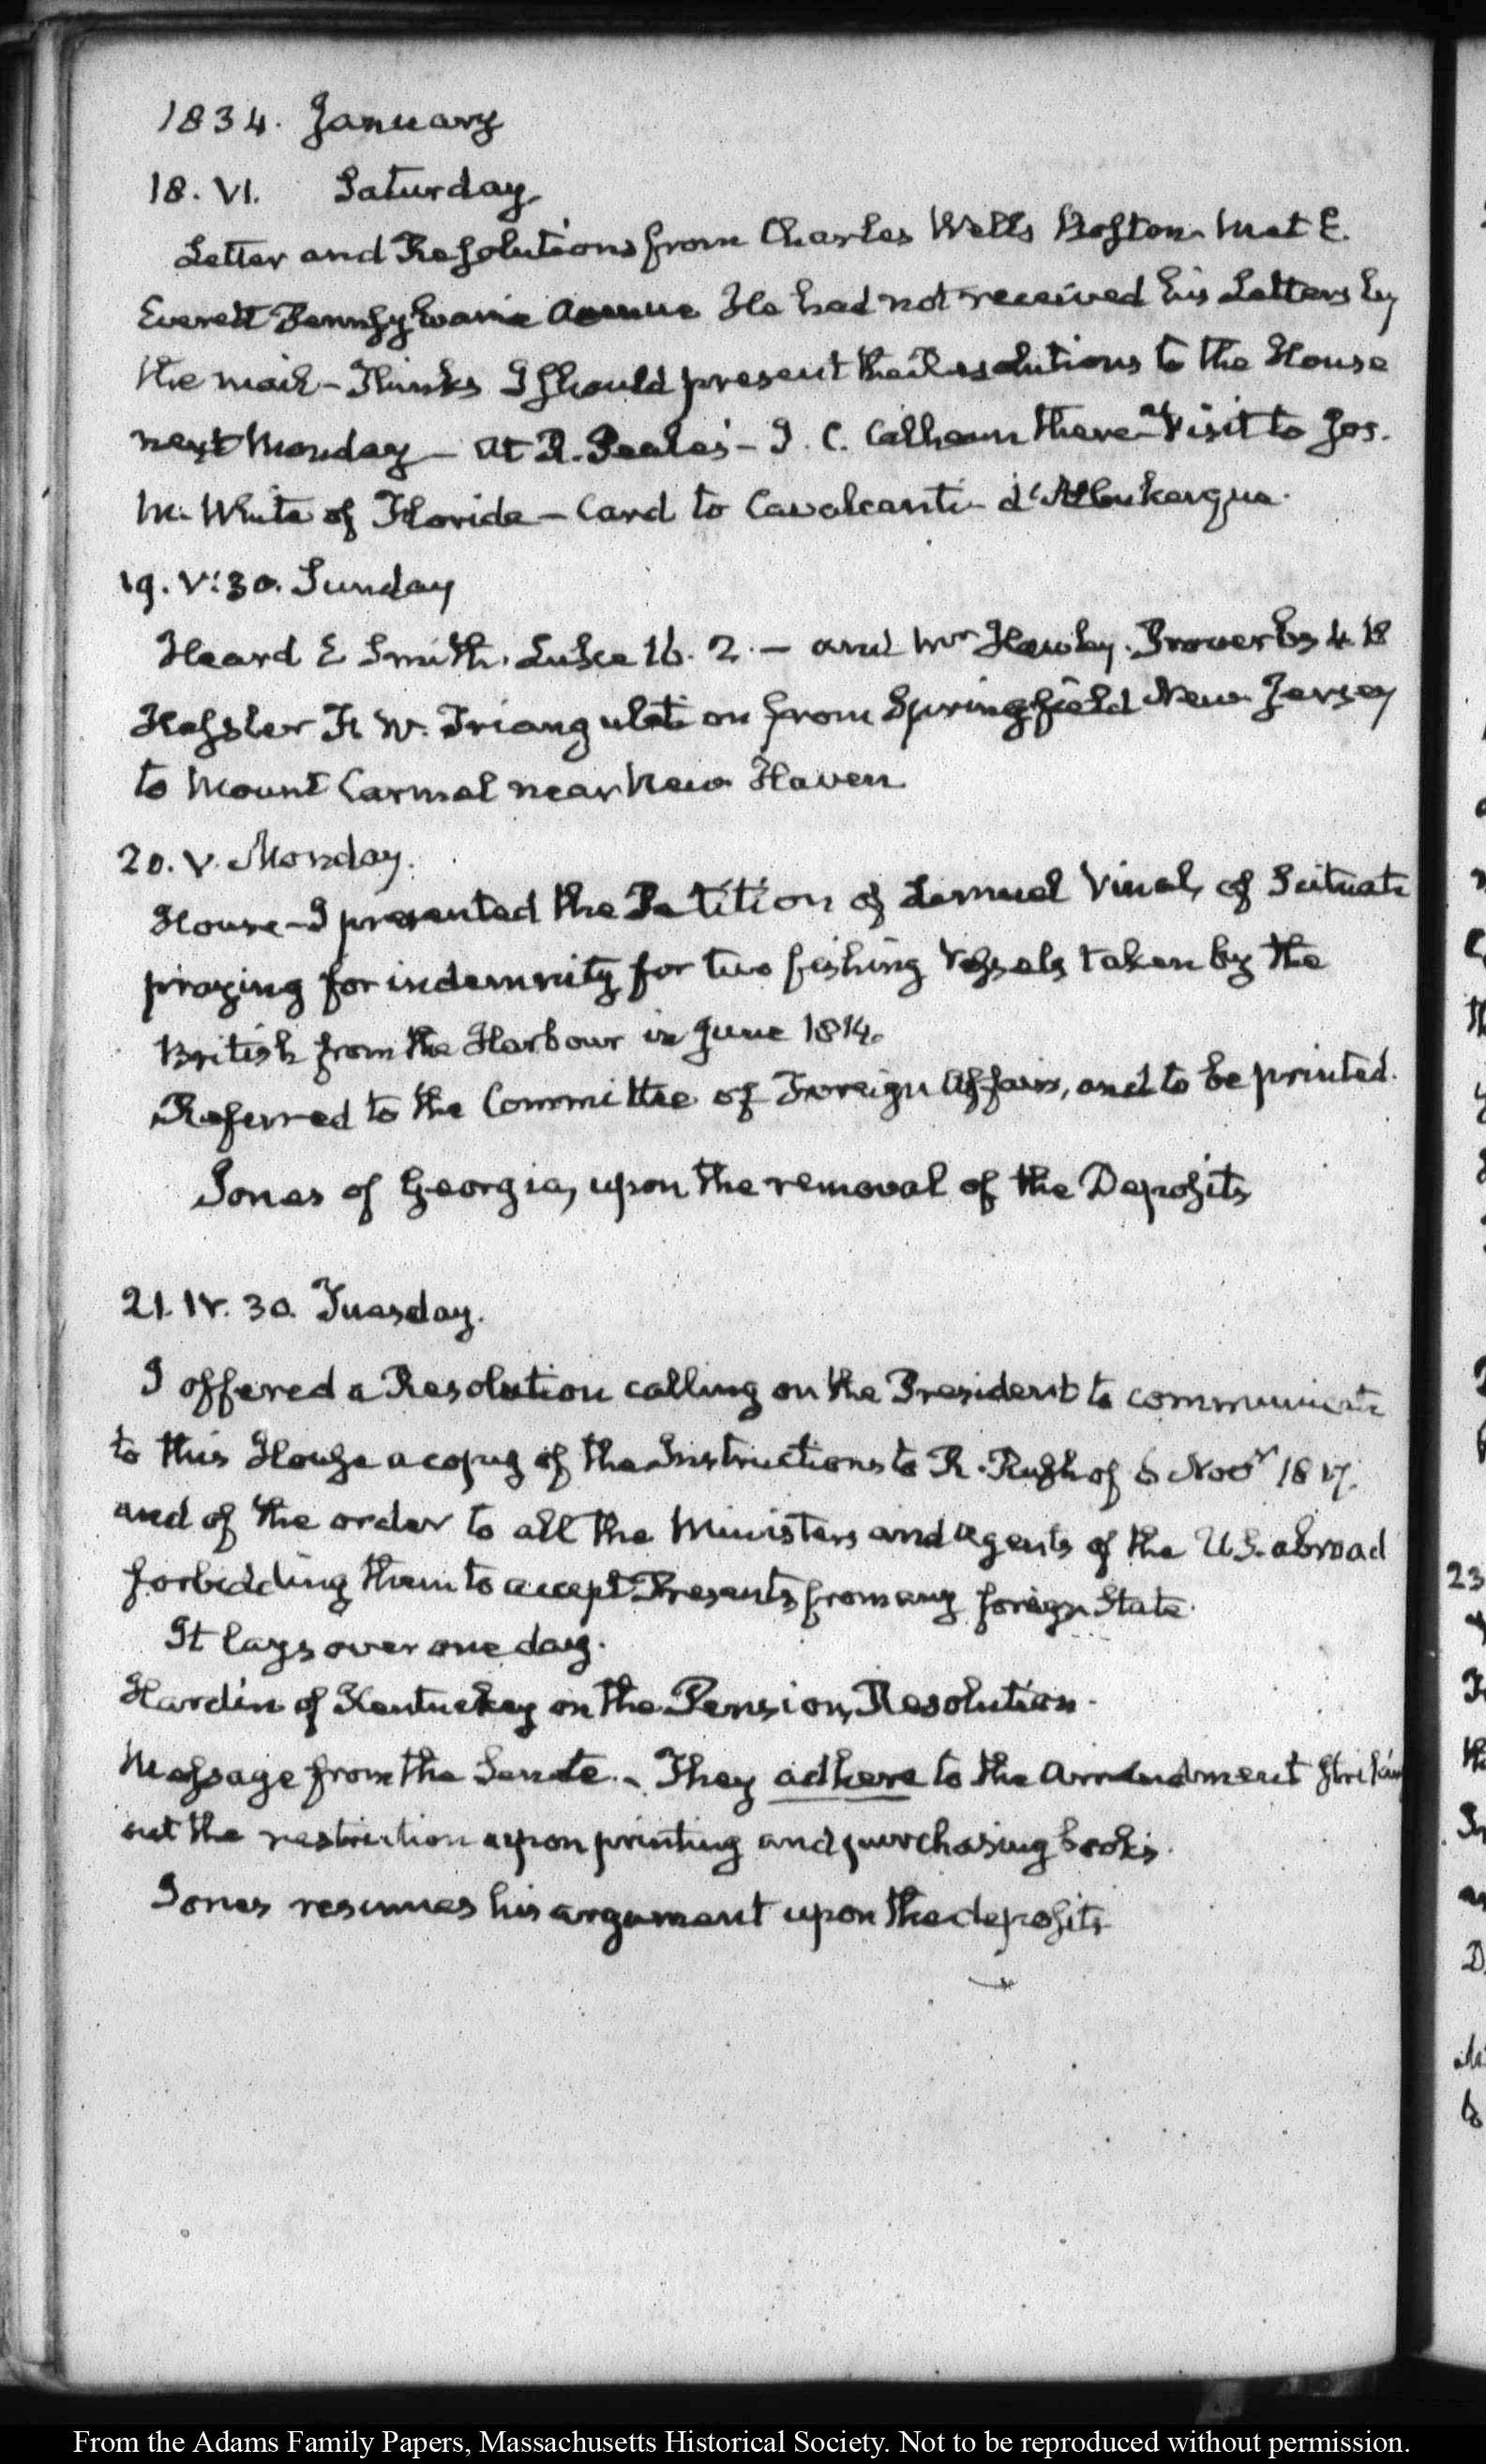 1834. January
18. VI. Saturday
Letter and Resolutions from Charles Wells Boston. Met E.
Everett Pennsylvania Avenue He had not received his Letters by
the mail – Thinks I should present the Resolutions to the House
next Monday – At R. Peale's – J. C. Calhoun there – Visit to Jos.
M. White of Florida – Card to Cavalcanti d'Albukerque.
19. V:30. Sunday
Heard E Smith. Luke 16. 2. – and Mr Hawley. Proverbs 4. 18
Hassler F. W. Triangulation from Springfield New Jersey
to Mount Carmel near New Haven
20. V. Monday.
House – I presented the Petition of Lemuel Vinal, of Scituate
praying for indemnity for two fishing vessels taken by the
British from the Harbour in June 1814.
Referred to the Committee of Foreign Affairs, and to be printed.
Jones of Georgia, upon the removal of the Deposits
21. IV. 30. Tuesday.
I offered a Resolution calling on the President to communicate
to this House a copy of the Instructions to R. Rush of 6 Novr 1817.
and of the order to all the Ministers and Agents of the U.S. abroad
forbidding them to accept Presents from any foreign State.
It lays over one day.
Hardin of Kentucky on the Pension Resolution.
Message from the Senate. – They adhere to the Amendment striking
out the restriction upon printing and purchasing books.
Jones resumes his argument upon the deposits
From the Adams Family Papers, Massachusetts Historical Society. Not to be reproduced without permission.